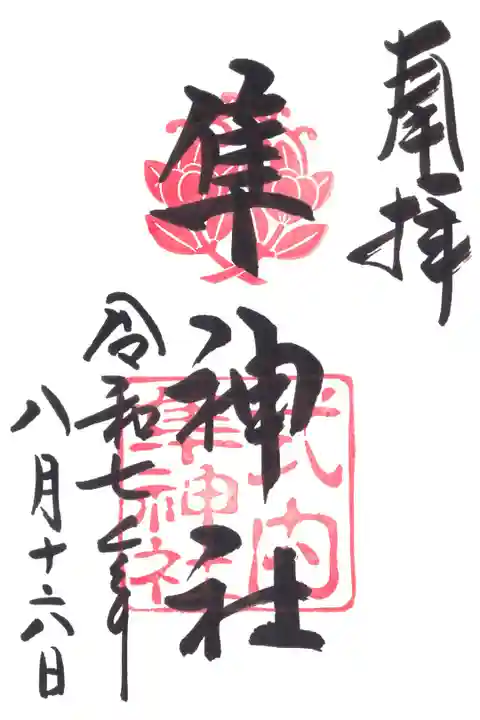 奉拝
隼神社
式内
隼神社
令和七年
八月十六日